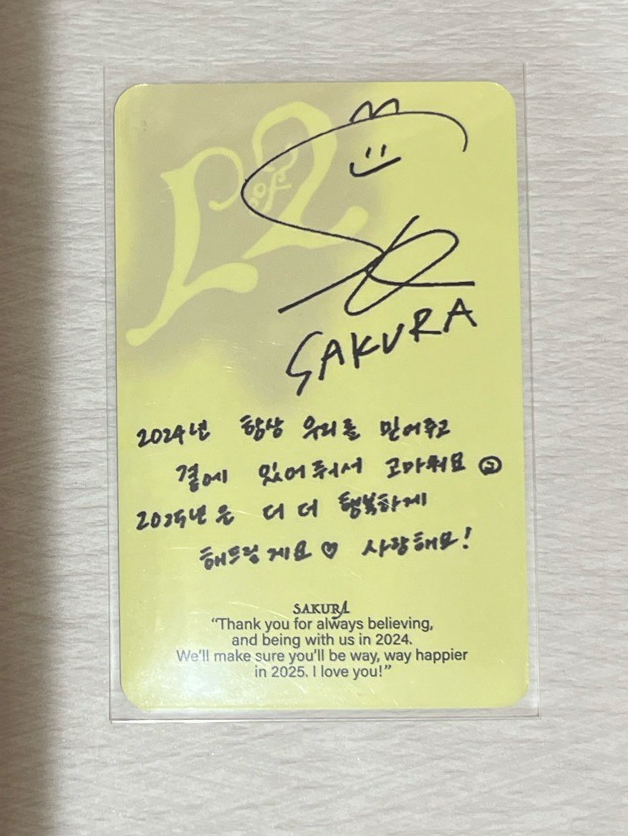 SAKURA
2024년 항상 우리를 믿어주고
곁에 있어줘서 고마워요
2025년은 더 더 행복하게
해드릴게요♡ 사랑해요!
SAKURA
“Thank you for always believing,
and being with us in 2024.
We'll make sure you'll be way, way happier
in 2025. I love you!”